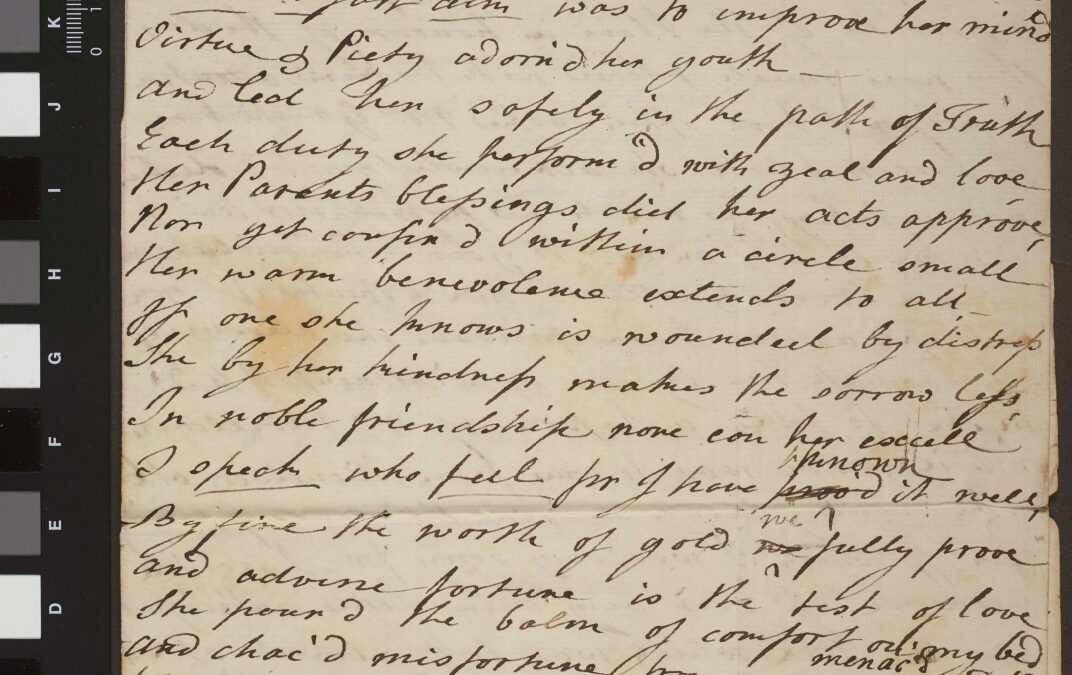 first aim was to improve her mind
Virtue & Piety adorn'd her youth
and led her safely in the path of Truth
Each duty she perform'd with zeal and love
Her Parents blessings did her acts approve,
Nor yet confin'd within a circle small
Her warm benevolence extends to all
If one she knows is wounded by distress
She by her kindness makes the sorrow less,
In noble friendship none can her excell
known
I speak who feel for I have proo'd it well,
we
By fire the worth of gold we fully prove
and adverse fortune is the test of love
She pour'd the balm of comfort on my bed
menac'd
and chac'd misfortune
K
J
I
H
G
F
E
D
0
1